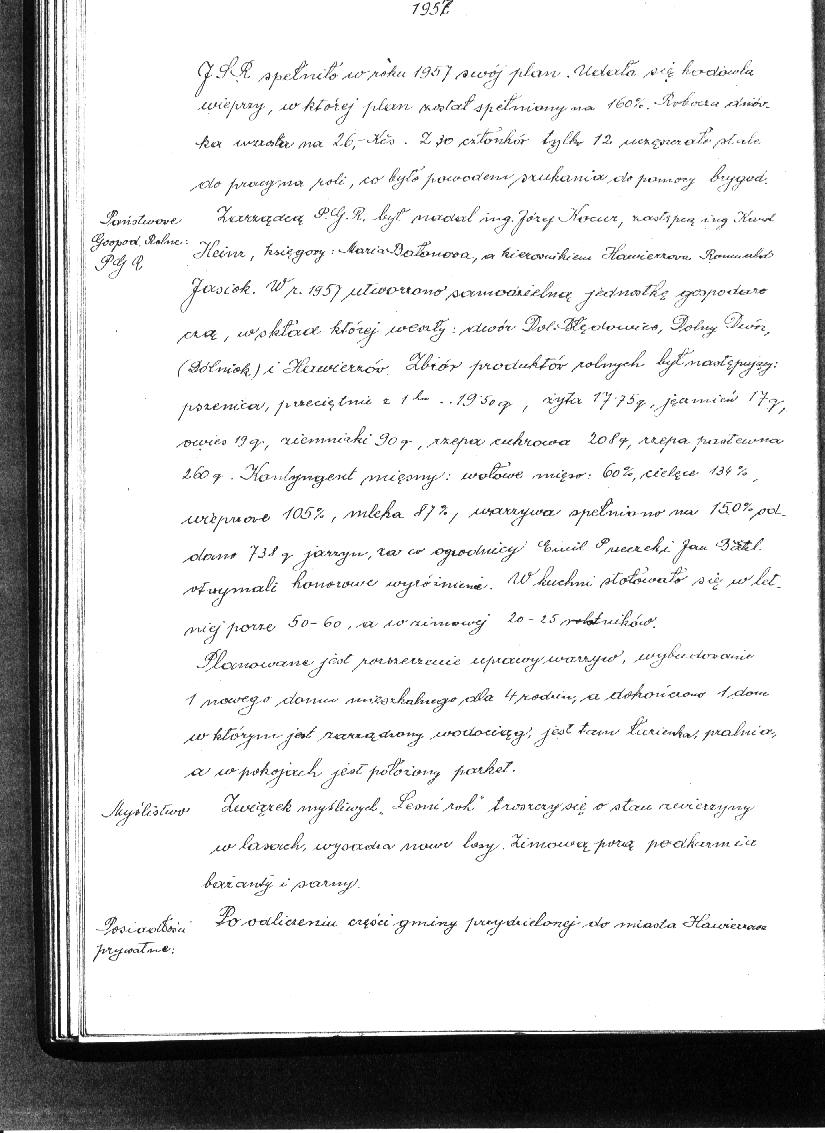 1957
J.S.R. spełniło w roku 1957 swój plan. Udała się hodowla
wieprzy, w której plan został spełniony na 160%. Robocza dniów-
ka wzrosła na 26,- Kčs. Z 30 członków tylko 12 uczęszczało stale
do pracy na roli, co było powodem szukania do pomocy brygad.
Państwowe
Gospod. Rolne:
P.G.R.
Zarządcą P.G.R. był nadal ing. Józef Kocur, zastępcą ing. Karol
Heinz, księgowy: Maria, a kierownikiem Hawierzowa Romuald
Jasiok. W r. 1957 utworzono samodzielną jednostkę gospodar-
czą, w skład której weszły: dwór Dol. Błędowice, Dolny Dwór,
(Dólniok) i Hawierzów. Zbiór produktów rolnych był następujący:
pszenica, przeciętnie z 1 ha .. 19 50 q, żyta 17 75 q, jęczmień 17 q,
owies 19 q, ziemniaki 90 q, rzepa cukrowa 208 q, rzepa pastewna
260 q. Kontyngent mięsny: wołowe mięso: 60%, cielęce 134%,
wieprzowe 105%, mleka 87%, warzywa spełniono na 150%, od-
dano 738 q jarzyn, za co ogrodnicy Emil i Jan
otrzymali honorowe wyróżnienie. W kuchni stołowało się w let-
niej porze 50-60, a w zimowej 20-25 robotników.
Planowane jest rozszerzenie uprawy warzyw, wybudowanie
1 nowego domu mieszkalnego dla 4 rodzin, a dokończono 1 dom
w którym jest zarządzony wodociąg, jest tam łazienka, pralnia,
a w pokojach jest położony parket.
Myślistwo
Związek myśliwych „Lesní roh" troszczy się o stan zwierzyny
w lasach, wysadza nowe lasy. Zimową porą podkarmia
bażanty i sarny.
Posiadłości
prywatne:
Po odliczeniu części gminy przydzielonej do miasta Hawierzowa